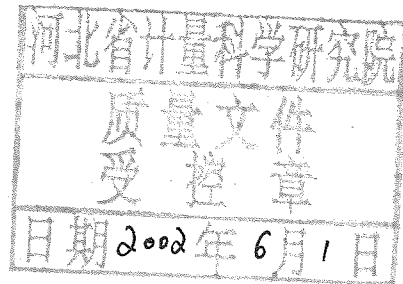 河北省计量科学研究院
质量文件
受控章
日期2002年6月1日